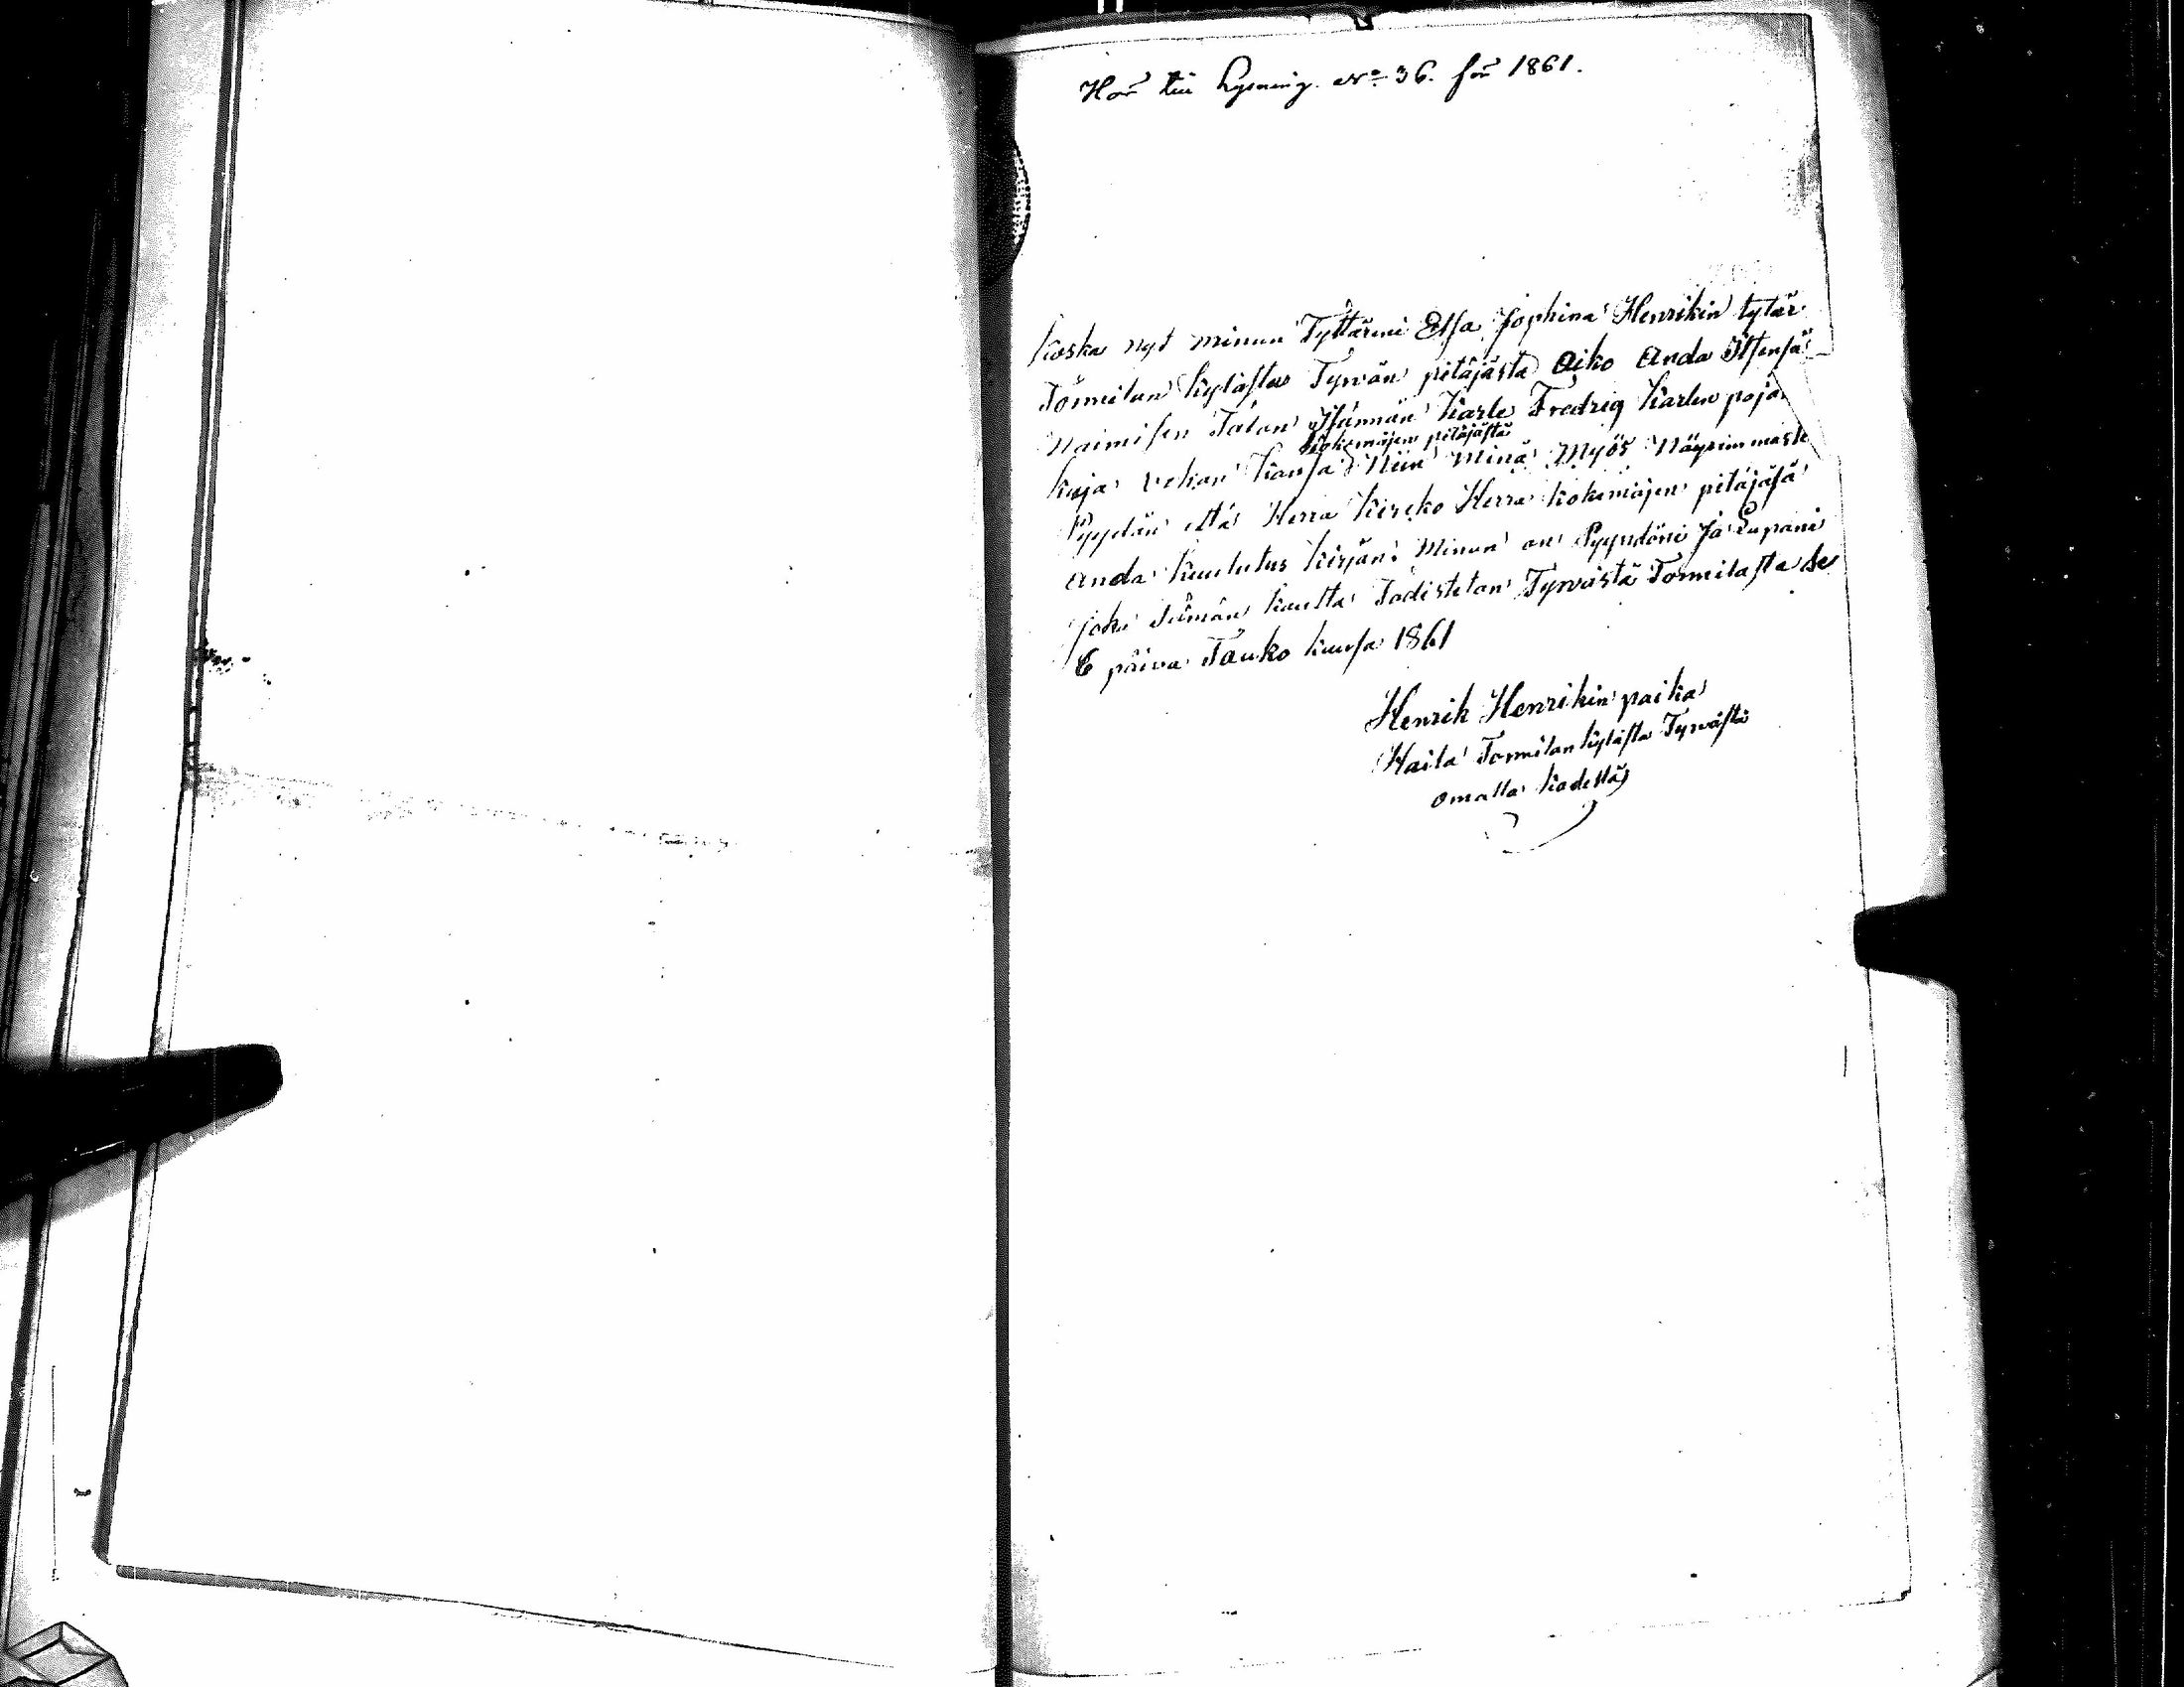 Hör till Lysning. No 36. för 1861.
koska nyt minun Tyttäreni Elsa Josphina Henrikin tytär
Tormilan kylästa Tyrvän pitäjästa Aiko Anda Ittensä
Naimisen Talan Isännän Karle Fredrig Karlen pojan
Kokemäjen pitäjästä
kuja kansa Niin Minä Myös Näyrimmast
Pyydän että Herra Kircko Herra kokemäjen pitäjäsä
anda kuulutus kirjan: Minun on Pyyndöni ja Lupani
joka Tämän kautta Todistetan Tyrvästä Tormilasta se
6 päiva Tauko kuusa 1861
Henrik Henrikin paika
Haila Tormilan kylästa Tyrvästä
omalla kädellä